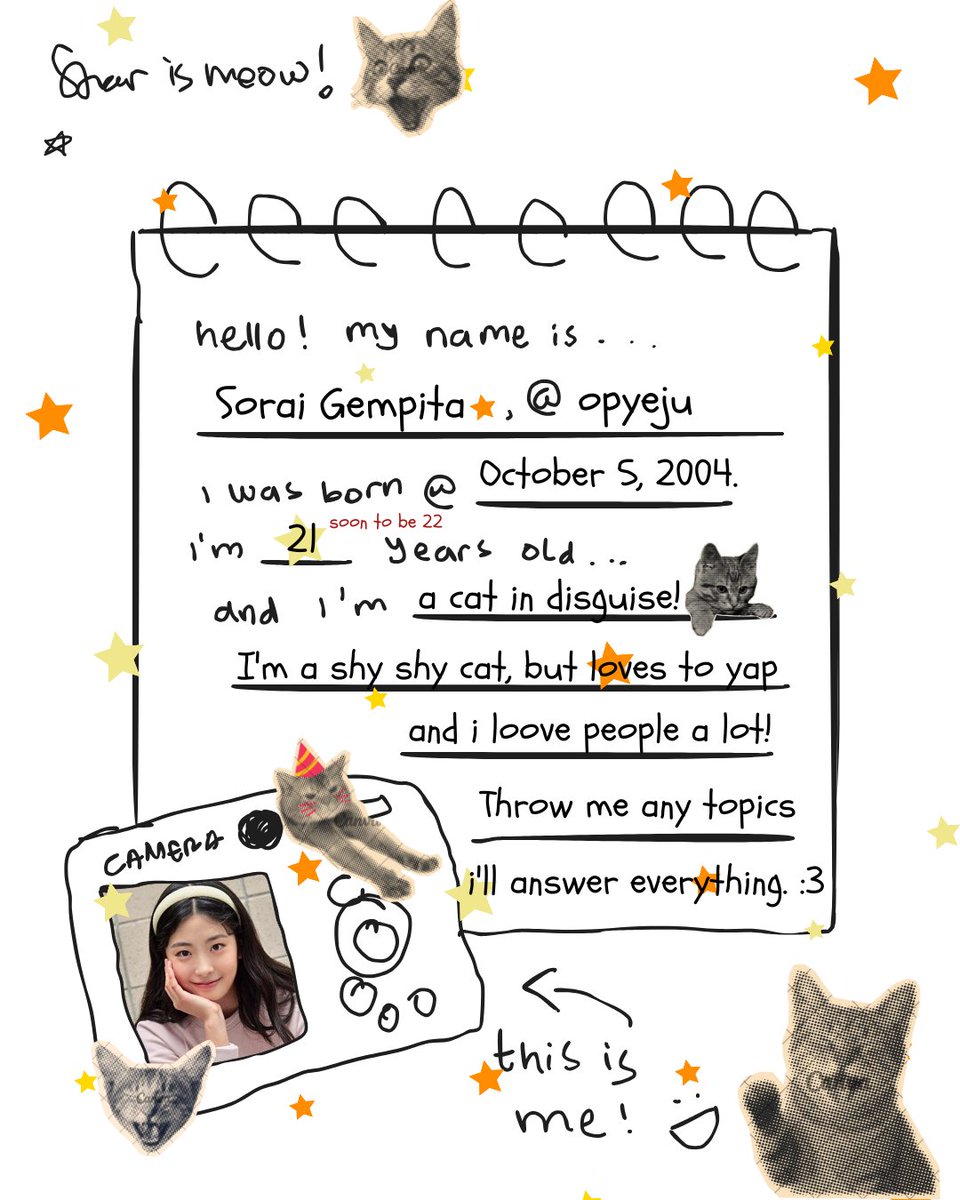 Star is meow!
hello! my name is . . .
Sorai Gempita , @ opyeju
i was born @ October 5, 2004.
soon to be 22
i'm 21 years old...
and i'm a cat in disguise!
I'm a shy shy cat, but loves to yap
and i loove people a lot!
Throw me any topics
i'll answer everything. :3
CAMERA
this is
me!